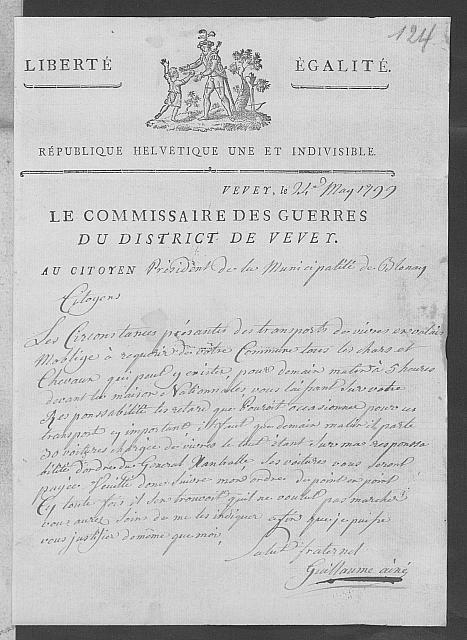 124
LIBERTÉ ÉGALITÉ.
RÉPUBLIQUE HELVÉTIQUE UNE ET INDIVISIBLE.
VEVEY, le 24e May 1799
LE COMMISSAIRE DES GUERRES
DU DISTRICT DE VEVEY.
AU CITOYEN Président de la Municipalité de Blonay
Citoyens
Les Circonstances présantes des transports de vivres en valais
M'oblige à requerir de vôtre Commune tous les chars et
Chevaux qui peut y exister pour demain matin à 5 heures
devant la maison Nationnales vous laissant sur votre
Responssabilité les retard que Pouroit occasionna pour ce
transport sy important il faut que demain matin il parte
30 voitures chargée de vivres le tout étant sur ma responssa
bilité d'ordre du General ses voitures vous seront
payée Veuillé donc suivre mon ordre de point en point
Cy toute fois il s'en trouvoit qu'il ne voulut pas marcher
vous aurez soin de me les indiquer afin que je puisse
vous justifier de même que moi
Salut fraternel
Guillaume ainé